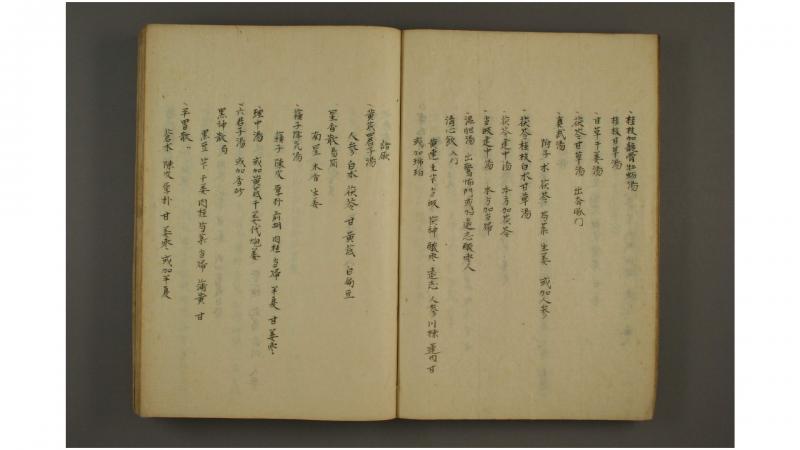 桂枝加龍骨牡蛎湯
桂枝甘草湯
甘草干姜湯
茯苓甘草湯 出奔豚門
真武湯
附子 朮 茯苓 芍薬 生姜 或加人参
茯苓桂枝白朮甘草湯
茯苓建中湯 本方加茯苓
当皈建中湯 本方加当帰
温胆湯 出驚悸門或加遠志酸枣人
清心飲 入門
黄連 生芐 当皈 茯神 酸枣 遠志 人参 川 蓮肉 甘
或加琥珀
諸厥
黄芪四君子湯
人参 白朮 茯苓 甘 黄芪 白扁豆
星香散 易簡
南星 木香 生姜
附子陳皮湯
附子 陳皮 厚朴 前胡 肉桂 当帰 半夏 甘 姜枣
理中湯 或加黄芪干姜代炮姜
六君子湯 或加香砂
黒神散 局
黒豆 芐 干姜 肉桂 芍薬 当帰 蒲黄 甘
平胃散
蒼朮 陳皮 厚朴 甘 姜枣 或加半夏